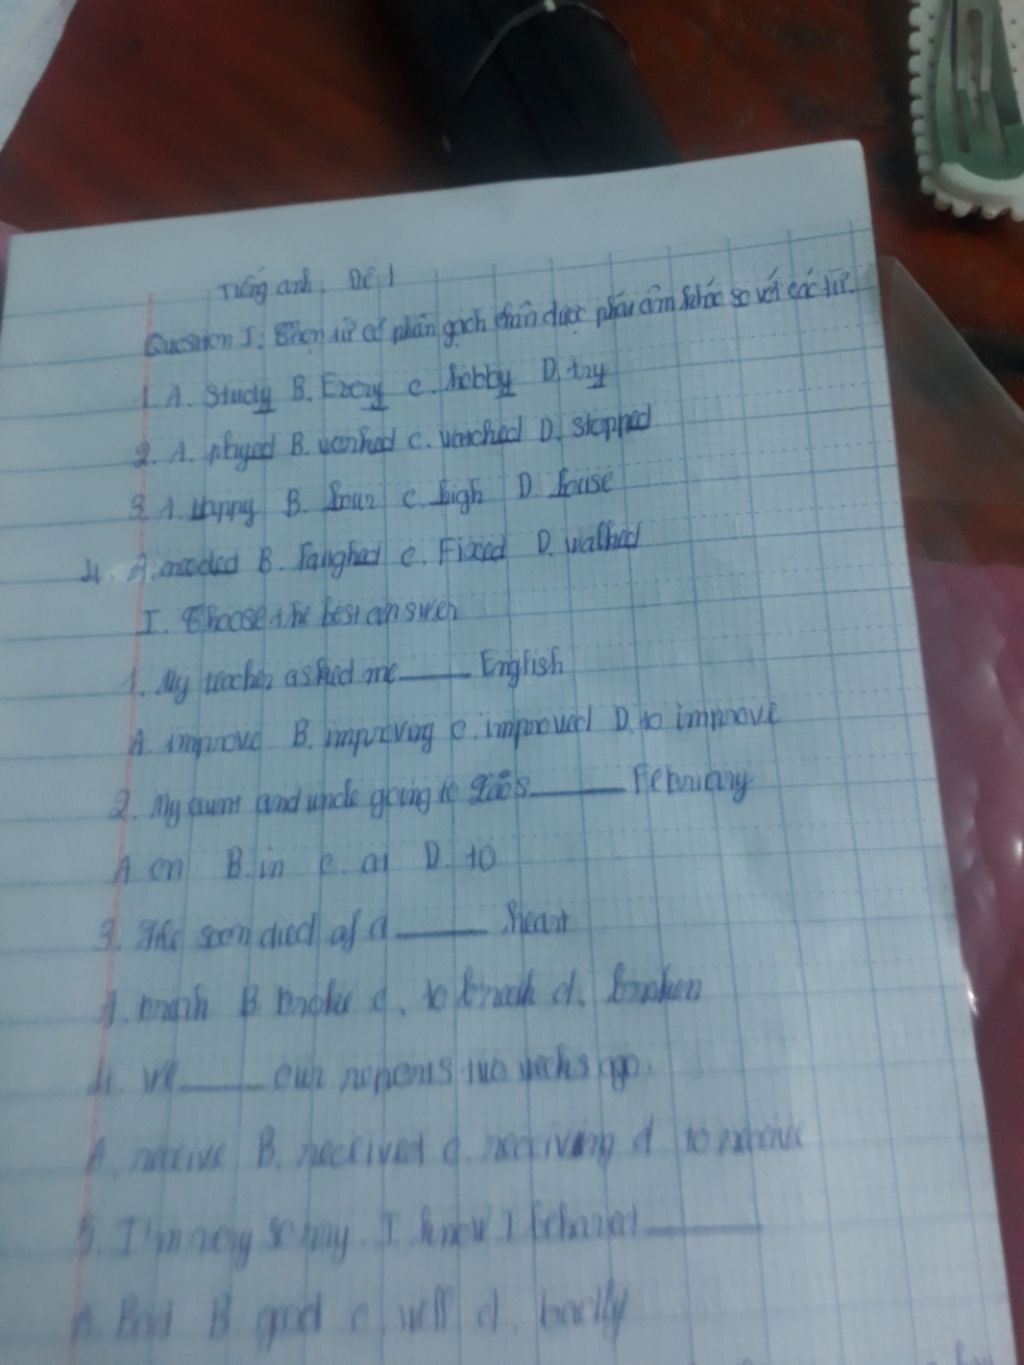 Tiếng anh. Đề 1
Question I: Chọn từ có phần gạch chân được phát âm khác so với các từ.
1. A. Study B. Every C. hobby D. try
2. A. played B. worked C. watched D. stopped
3. A. Happy B. hour C. high D. house
4. A. needed B. laughed C. Fixed D. walked
I. Choose the best answer
1. My teacher asked me ____ English
A. improve B. improving C. improved D. to improve
2. My aunt and uncle going to ____ February
A. on B. in C. at D. to
3. died of a ____ heart
A. break B. broke C. to break d. broken
4. We ____ our two weeks ago.
A. receive B. received C. receiving d. to receive
5. I'm very sorry. I know I ____
A. Bad B. good C. well d. badly